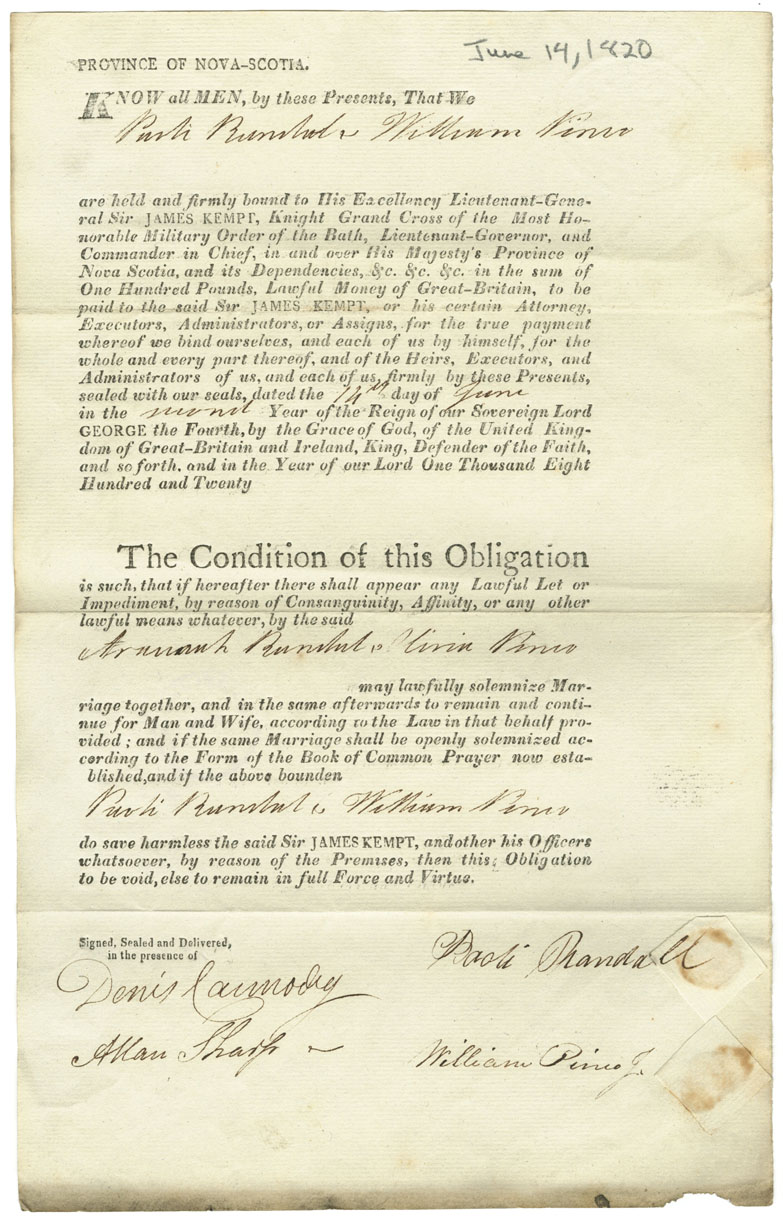 June 14, 1820
PROVINCE OF NOVA-SCOTIA.
KNOW all MEN, by these Presents, That We
Paoli Randal & William Pineo
are held and firmly bound to His Excellency Lieutenant-Gene-
ral Sir JAMES KEMPT, Knight Grand Cross of the Most Ho-
norable Military Order of the Bath, Lieutenant-Governor, and
Commander in Chief, in and over His Majesty's Province of
Nova Scotia, and its Dependencies, &c. &c. &c. in the sum of
One Hundred Pounds, Lawful Money of Great-Britain, to be
paid to the said Sir JAMES KEMPT, or his certain Attorney,
Executors, Administrators, or Assigns, for the true payment
whereof we bind ourselves, and each of us by himself, for the
whole and every part thereof, and of the Heirs, Executors, and
Administrators of us, and each of us, firmly by these Presents,
sealed with our seals, dated the 14th day of June
in the second Year of the Reign of our Sovereign Lord
GEORGE the Fourth, by the Grace of God, of the United King-
dom of Great-Britain and Ireland, King, Defender of the Faith,
and so forth, and in the Year of our Lord One Thousand Eight
Hundred and Twenty
The Condition of this Obligation
is such, that if hereafter there shall appear any Lawful Let or
Impediment, by reason of Consanguinity, Affinity, or any other
lawful means whatever, by the said
Randal & Olivia Pineo
may lawfully solemnize Mar-
riage together, and in the same afterwards to remain and conti-
nue for Man and Wife, according to the Law in that behalf pro-
vided; and if the same Marriage shall be openly solemnized ac-
cording to the Form of the Book of Common Prayer now esta-
blished, and if the above bounden
Paoli Randal & William Pineo
do save harmless the said Sir JAMES KEMPT, and other his Officers
whatsoever, by reason of the Premises, then this Obligation
to be void, else to remain in full Force and Virtue.
Signed, Sealed and Delivered,
in the presence of
Paoli Randall
Denis
Allan Sharp
William Pineo J.